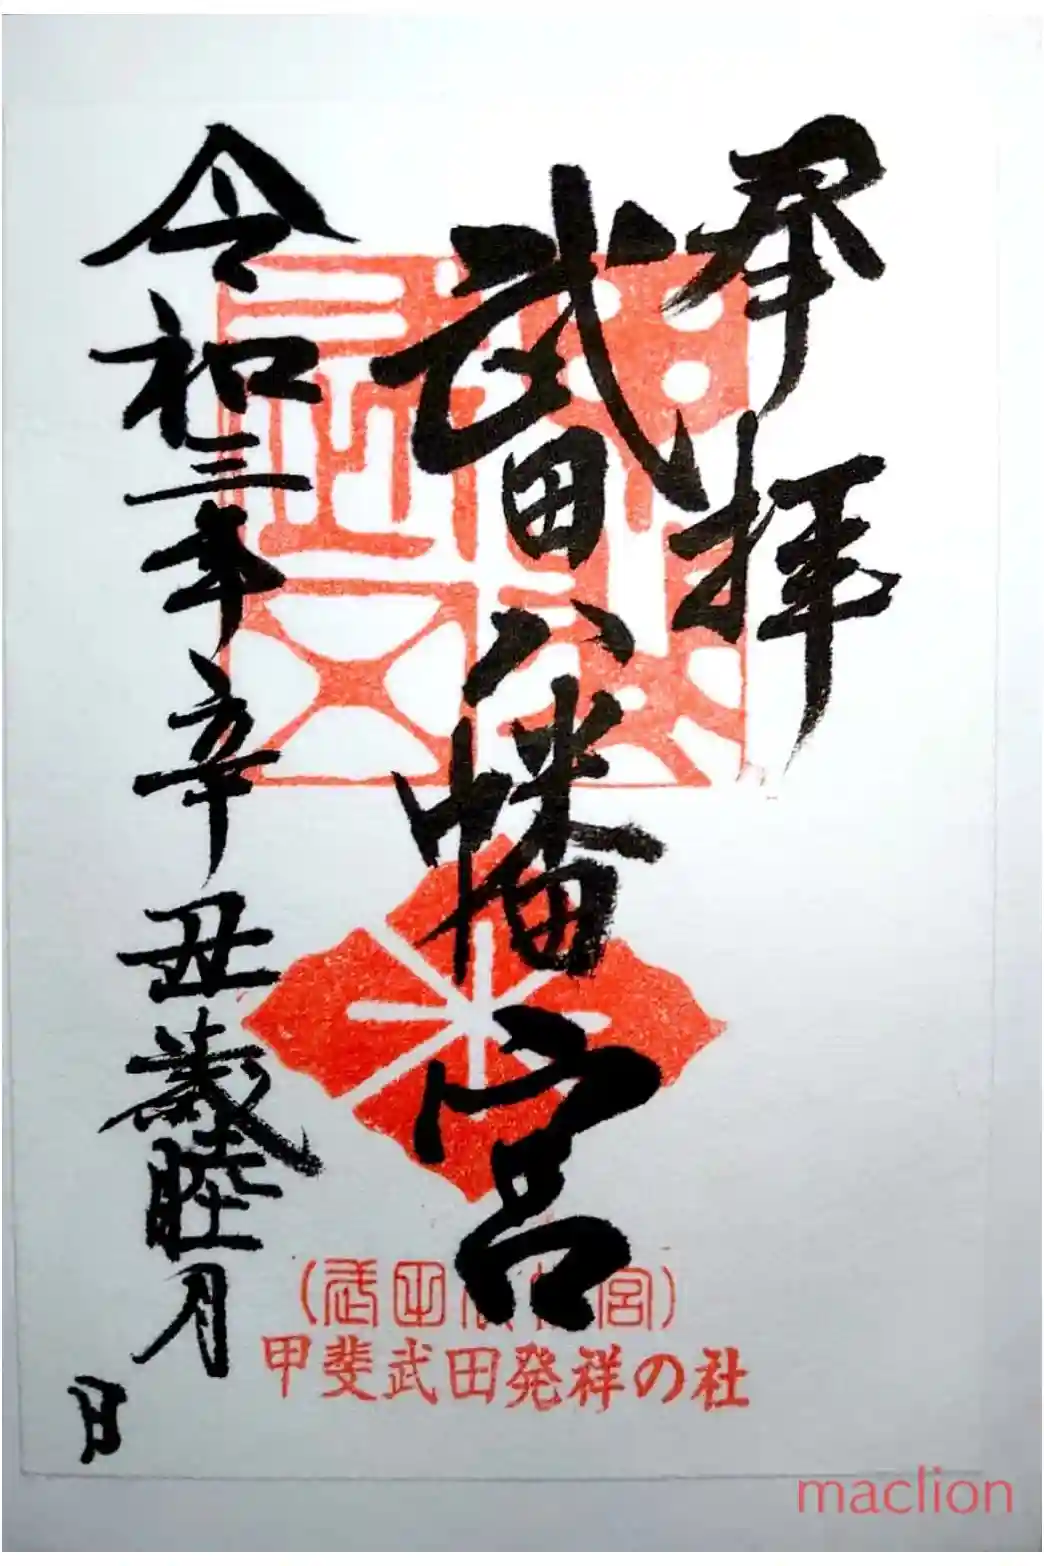 奉拝
武田八幡宮
令和三年辛丑歳睦月
日
(武田八幡宮)
甲斐武田発祥の社
maclion